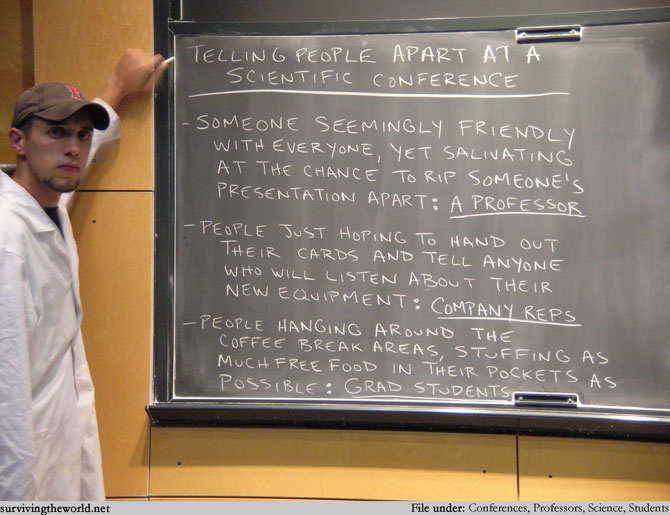 TELLING PEOPLE APART AT A
SCIENTIFIC CONFERENCE
- SOMEONE SEEMINGLY FRIENDLY
WITH EVERYONE, YET SALIVATING
AT THE CHANCE TO RIP SOMEONE'S
PRESENTATION APART: A PROFESSOR
- PEOPLE JUST HOPING TO HAND OUT
THEIR CARDS AND TELL ANYONE
WHO WILL LISTEN ABOUT THEIR
NEW EQUIPMENT: COMPANY REPS
- PEOPLE HANGING AROUND THE
COFFEE BREAK AREAS, STUFFING AS
MUCH FREE FOOD IN THEIR POCKETS AS
POSSIBLE: GRAD STUDENTS
survivingtheworld.net
File under: Conferences, Professors, Science, Students